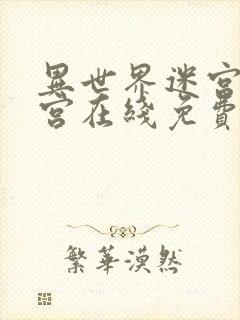 異世界迷宮
宮在綫免費
繁華漠然